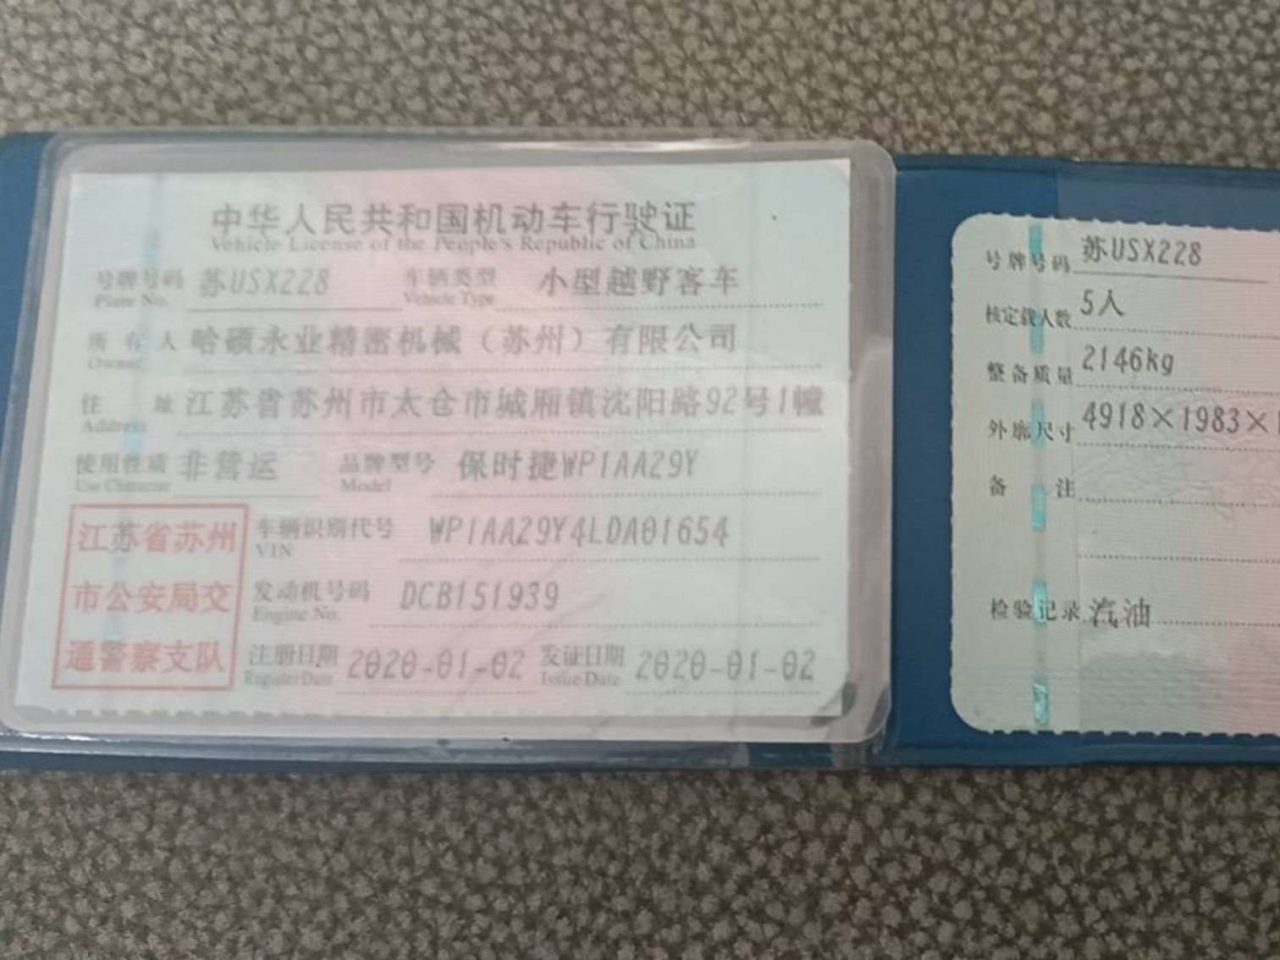 中华人民共和国机动车行驶证
Vehicle License of the People's Republic of China
号牌号码 苏USX228 车辆类型 小型越野客车
Plate No. Vehicle Type
所有人 哈硕永业精密机械（苏州）有限公司
Owner
住址 江苏省苏州市太仓市城厢镇沈阳路92号1幢
Address
使用性质 非营运 品牌型号 保时捷WP1AA29Y
Use Character Model
江苏省苏州
市公安局交
通警察支队
车辆识别代号 WP1AA29Y4LDA01654
VIN
发动机号码 DCB151939
Engine No.
注册日期 2020-01-02 发证日期 2020-01-02
Register Date Issue Date
号牌号码 苏USX228
核定载人数 5人
整备质量 2146kg
外廓尺寸 4918×1983×1
备注
检验记录 汽油